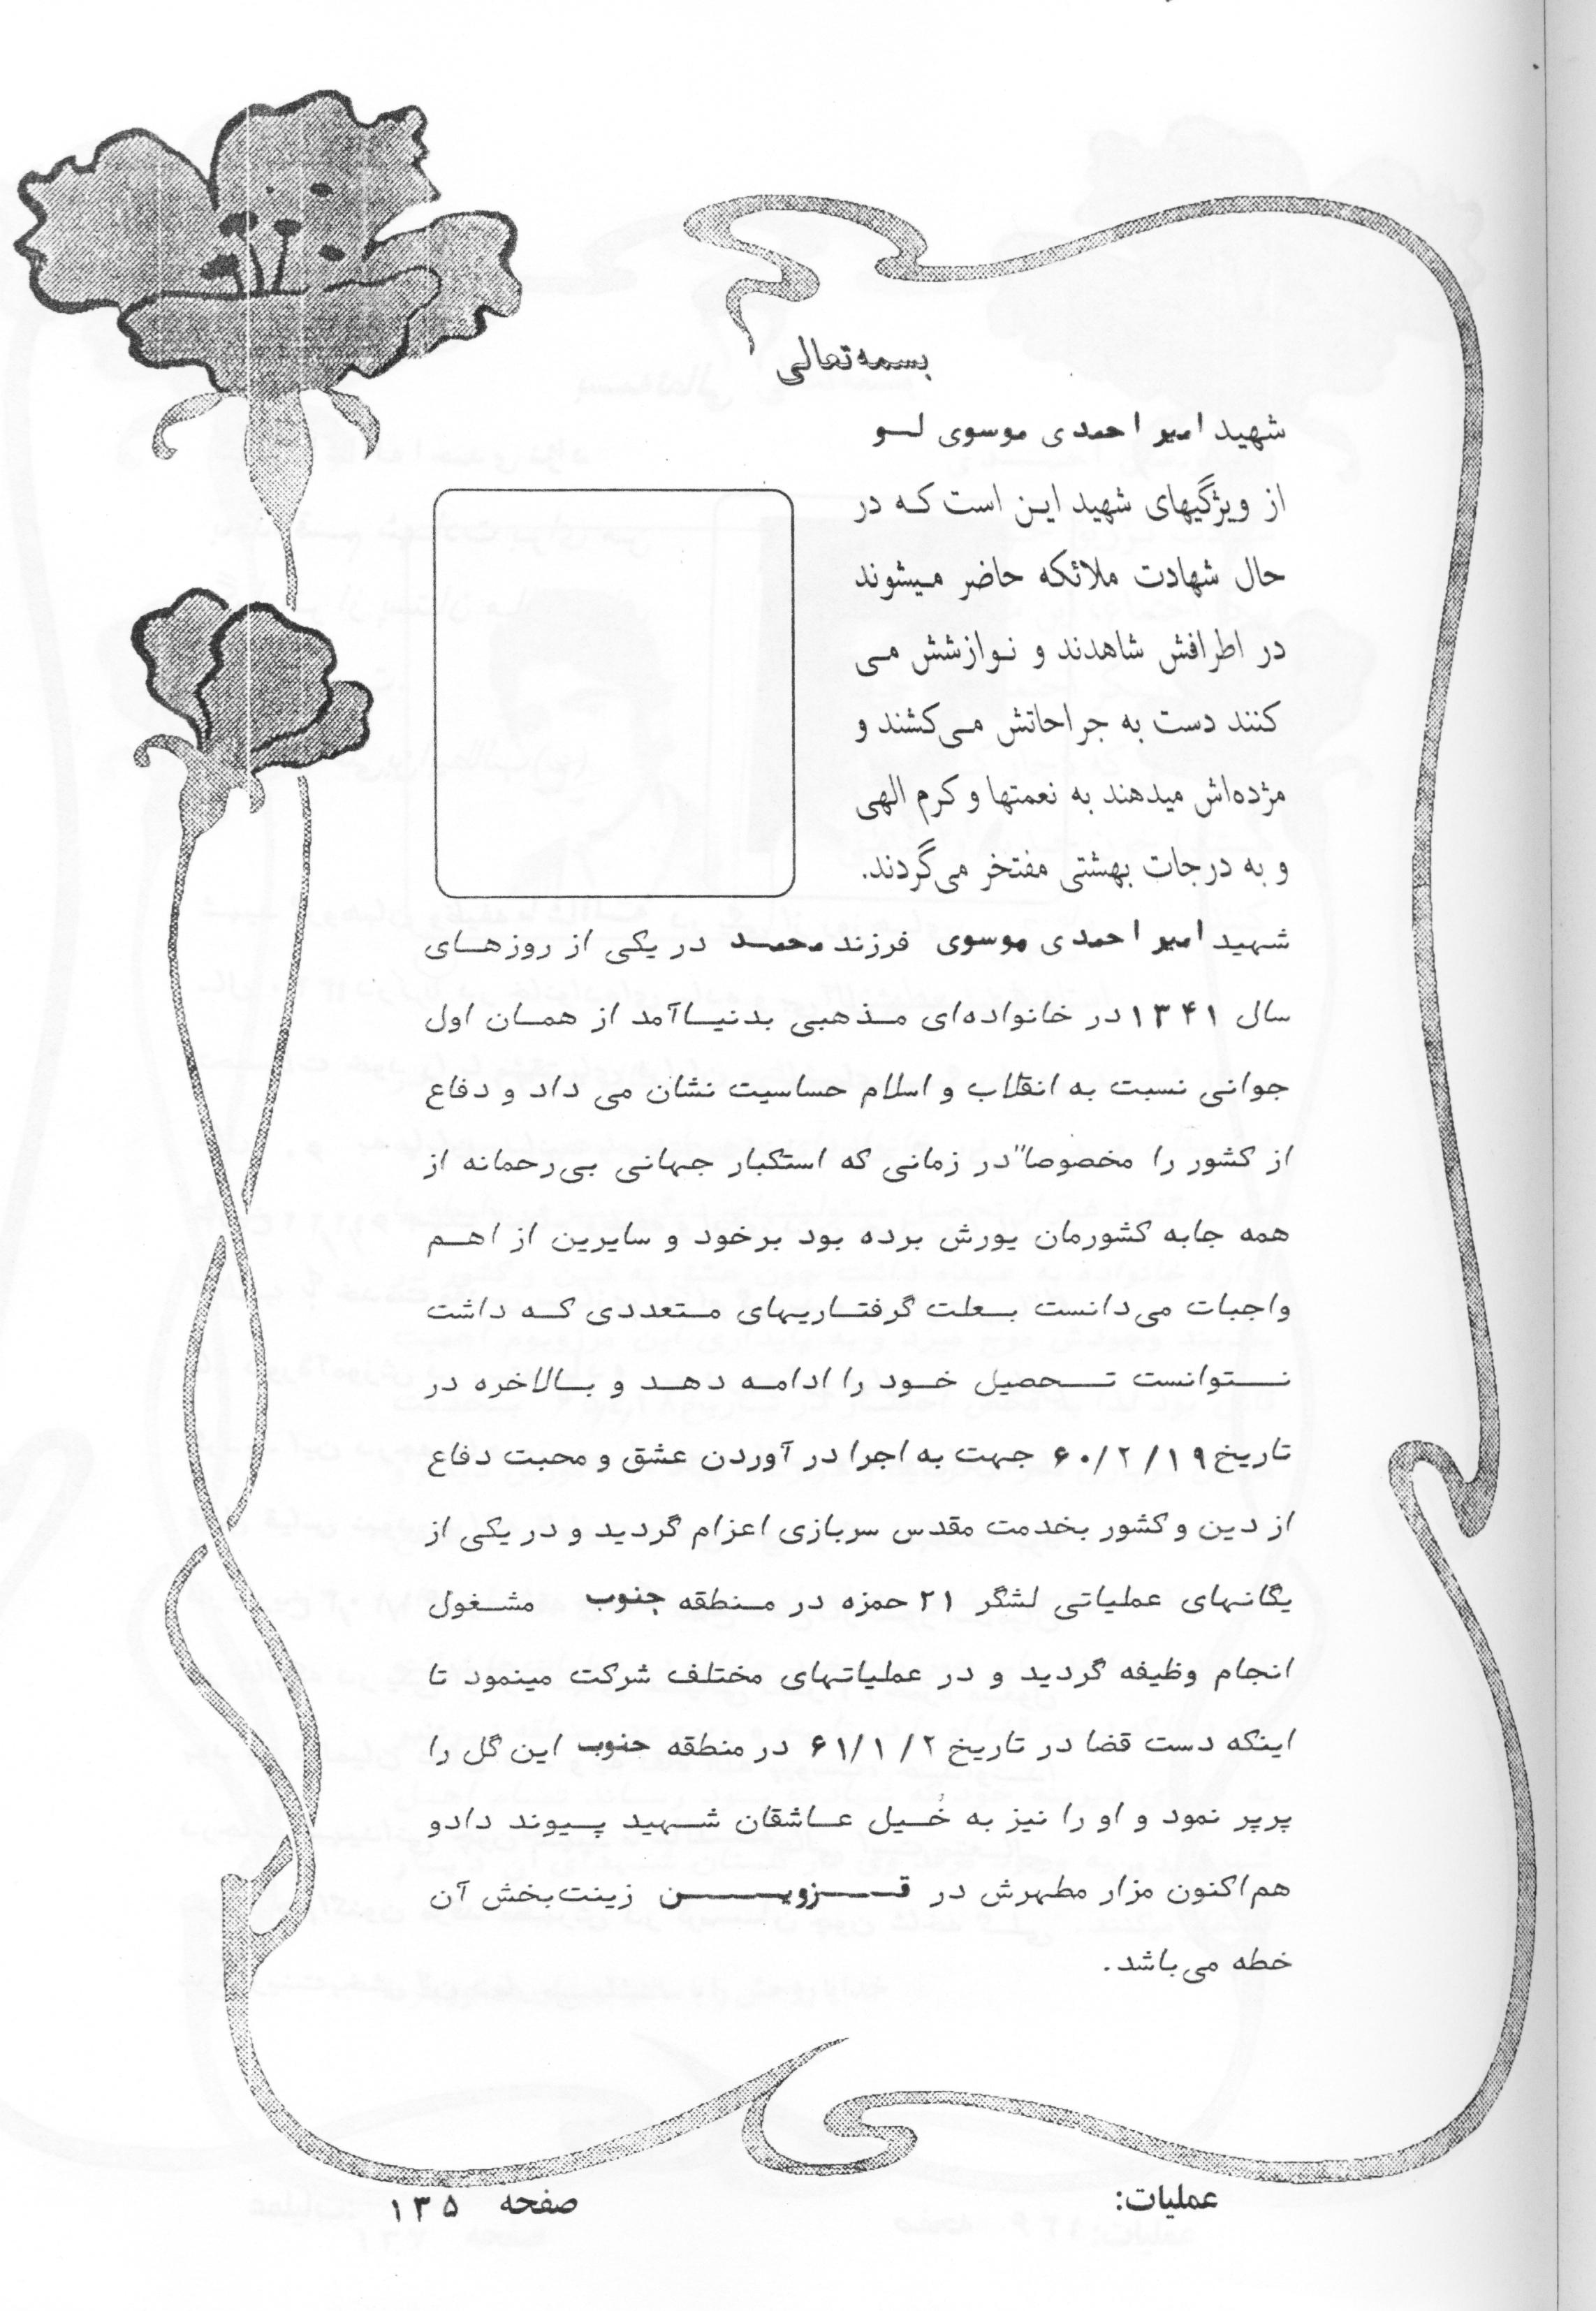 بسمه‌تعالی
شهید امیر احمدی موسوی لو
از ویژگیهای شهید این است که در
حال شهادت ملائکه حاضر میشوند
در اطرافش شاهدند و نوازشش می
کنند دست به جراحاتش می‌کشند و
مژده‌اش میدهند به نعمتها و کرم الهی
و به درجات بهشتی مفتخر می‌گردند.
شهید امیر احمدی موسوی فرزند محمد در یکی از روزهای
سال ۱۳۴۱ در خانواده‌ای مذهبی بدنیاآمد از همان اول
جوانی نسبت به انقلاب و اسلام حساسیت نشان می داد و دفاع
از کشور را مخصوصا" در زمانی که استکبار جهانی بی‌رحمانه از
همه جابه کشورمان یورش برده بود برخود و سایرین از اهم
واجبات می‌دانست بعلت گرفتاریهای متعددی که داشت
نتوانست تحصیل خود را ادامه دهد و بالاخره در
تاریخ ۶۰/۲/۱۹ جهت به اجرا در آوردن عشق و محبت دفاع
از دین و کشور بخدمت مقدس سربازی اعزام گردید و در یکی از
یگانهای عملیاتی لشگر ۲۱ حمزه در منطقه جنوب مشغول
انجام وظیفه گردید و در عملیاتهای مختلف شرکت مینمود تا
اینکه دست قضا در تاریخ ۶۱/۱/۲ در منطقه جنوب این گل را
پرپر نمود و او را نیز به خُیل عاشقان شهید پیوند دادو
هم‌اکنون مزار مطهرش در قزوین زینت‌بخش آن
خطه می‌باشد.
عملیات: صفحه ۱۳۵